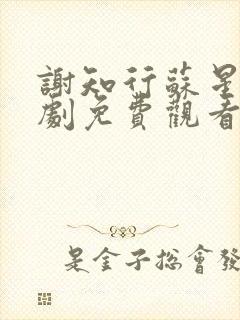 謝知行蘇星
劇免費觀看
是金子總會發